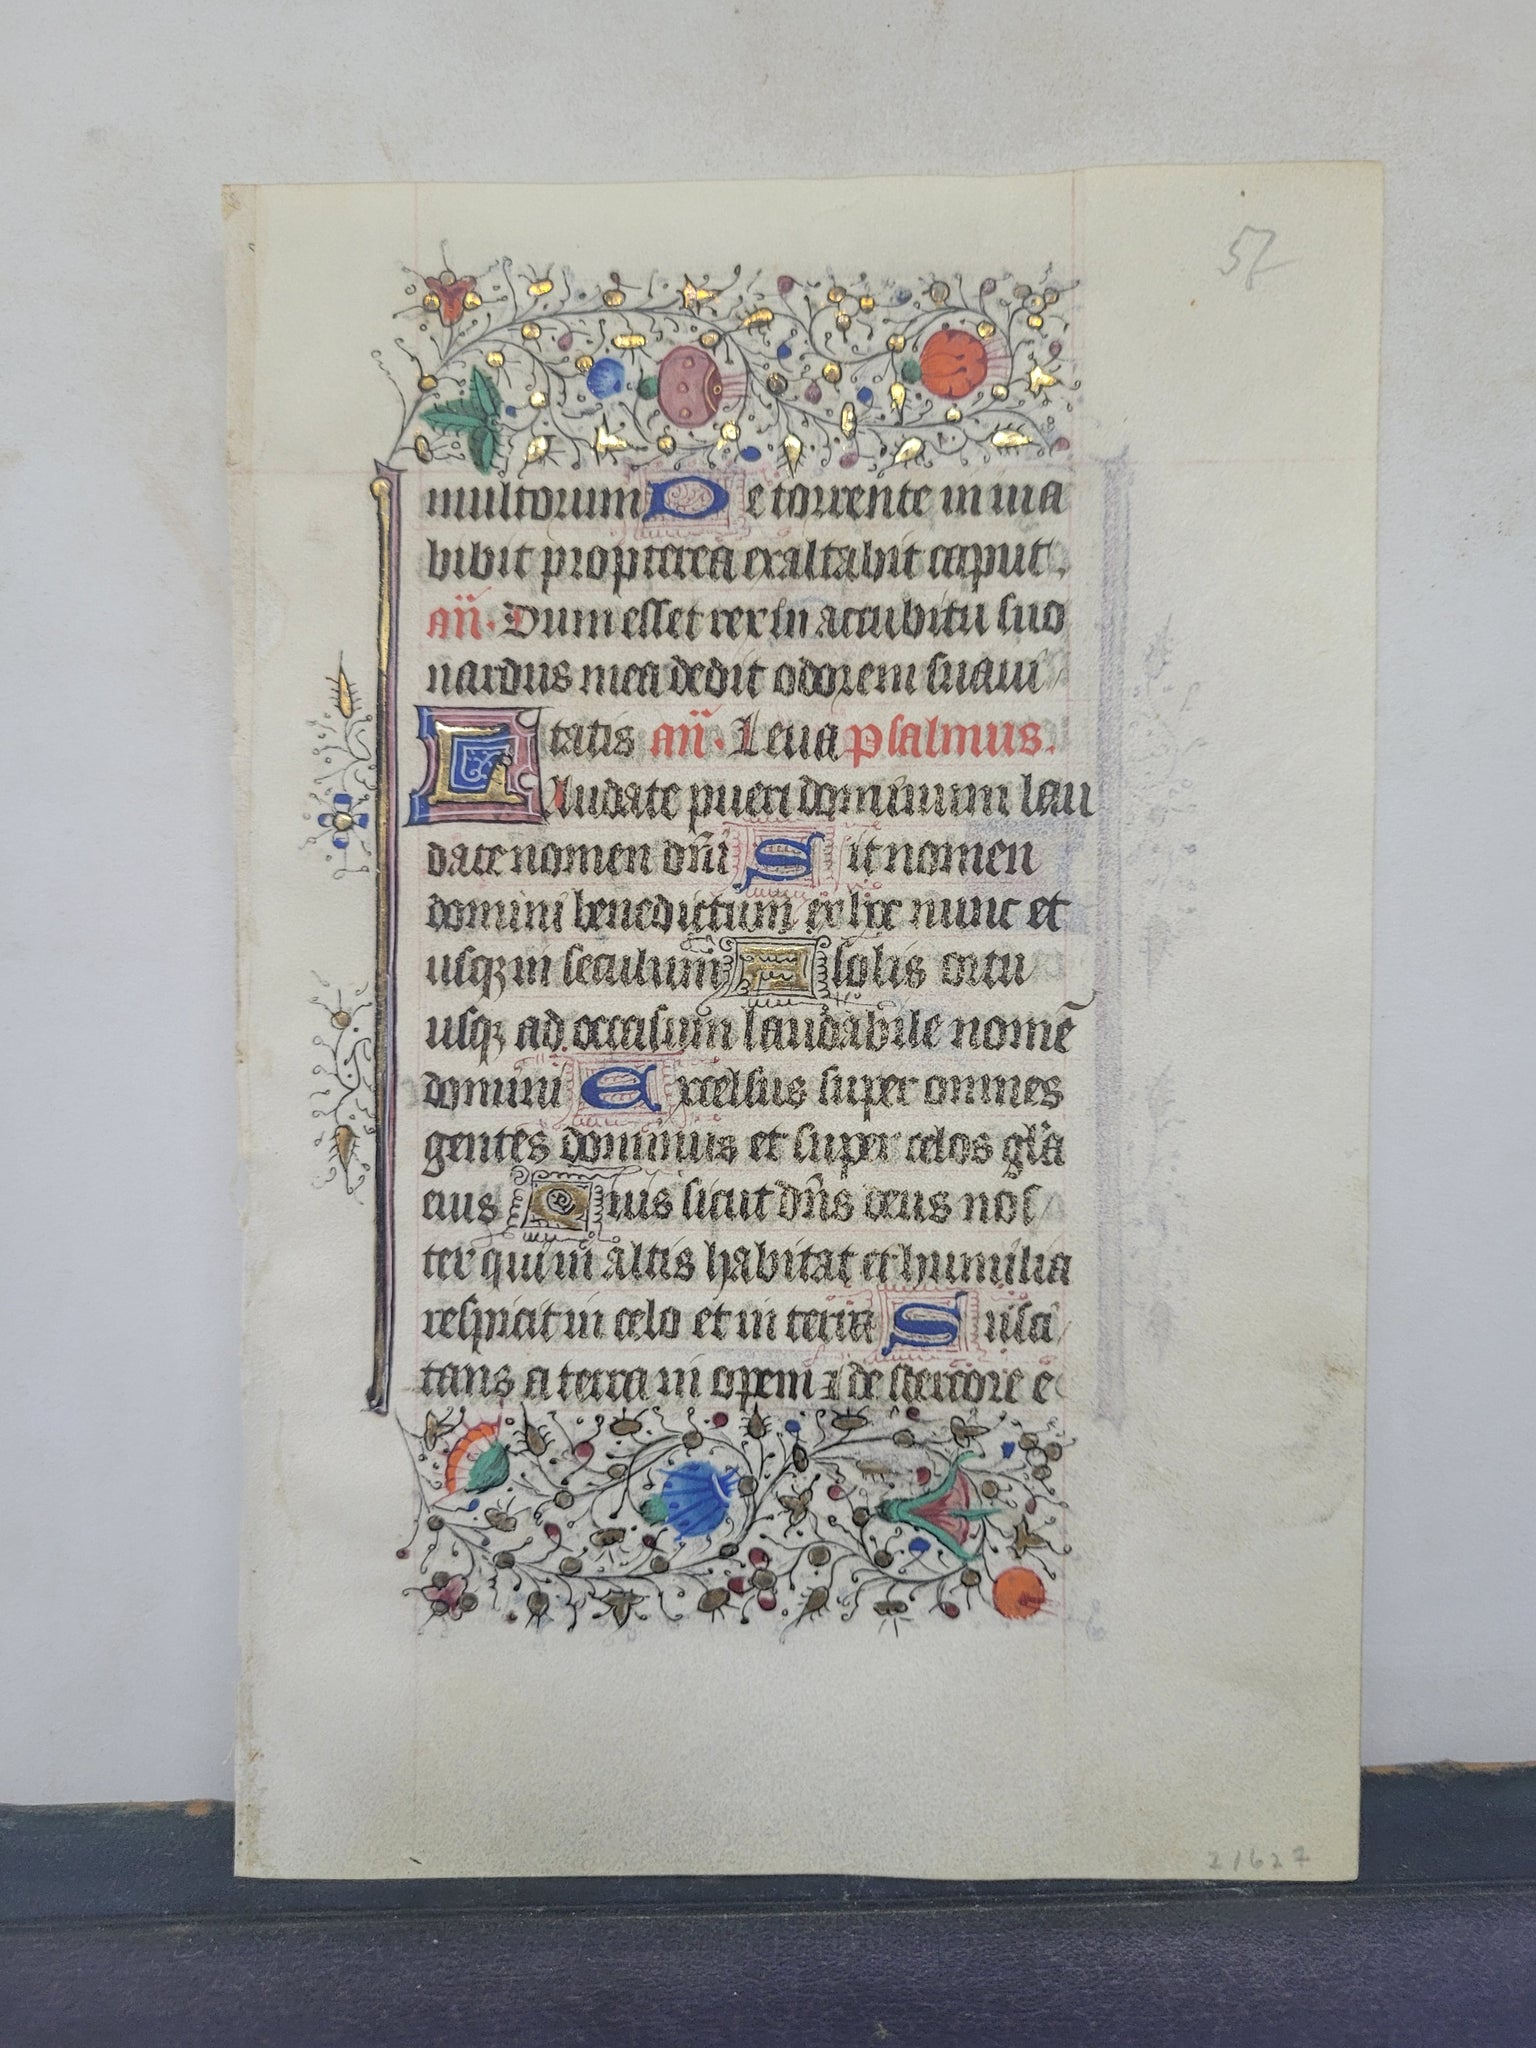 57
multorum De torrente in uia
bibit propterea exaltabit caput.
an̄. Dum esset rex in accubitu suo
nardus mea dedit odorem suaui
tatis an̄. Leua psalmus.
Laudate pueri dominum lau
date nomen dn̄i Sit nomen
domini benedictum ex hoc nunc et
usqꝫ in seculum A solis ortu
usqꝫ ad occasum laudabile nomē
domini Excelsus super omnes
gentes dominus et super celos gl̄a
eius Quis sicut dn̄s deus nos
ter qui in altis habitat et humilia
respicit in celo et in terra Susci
tans a terra in opem ⁊ de stercore e
21627